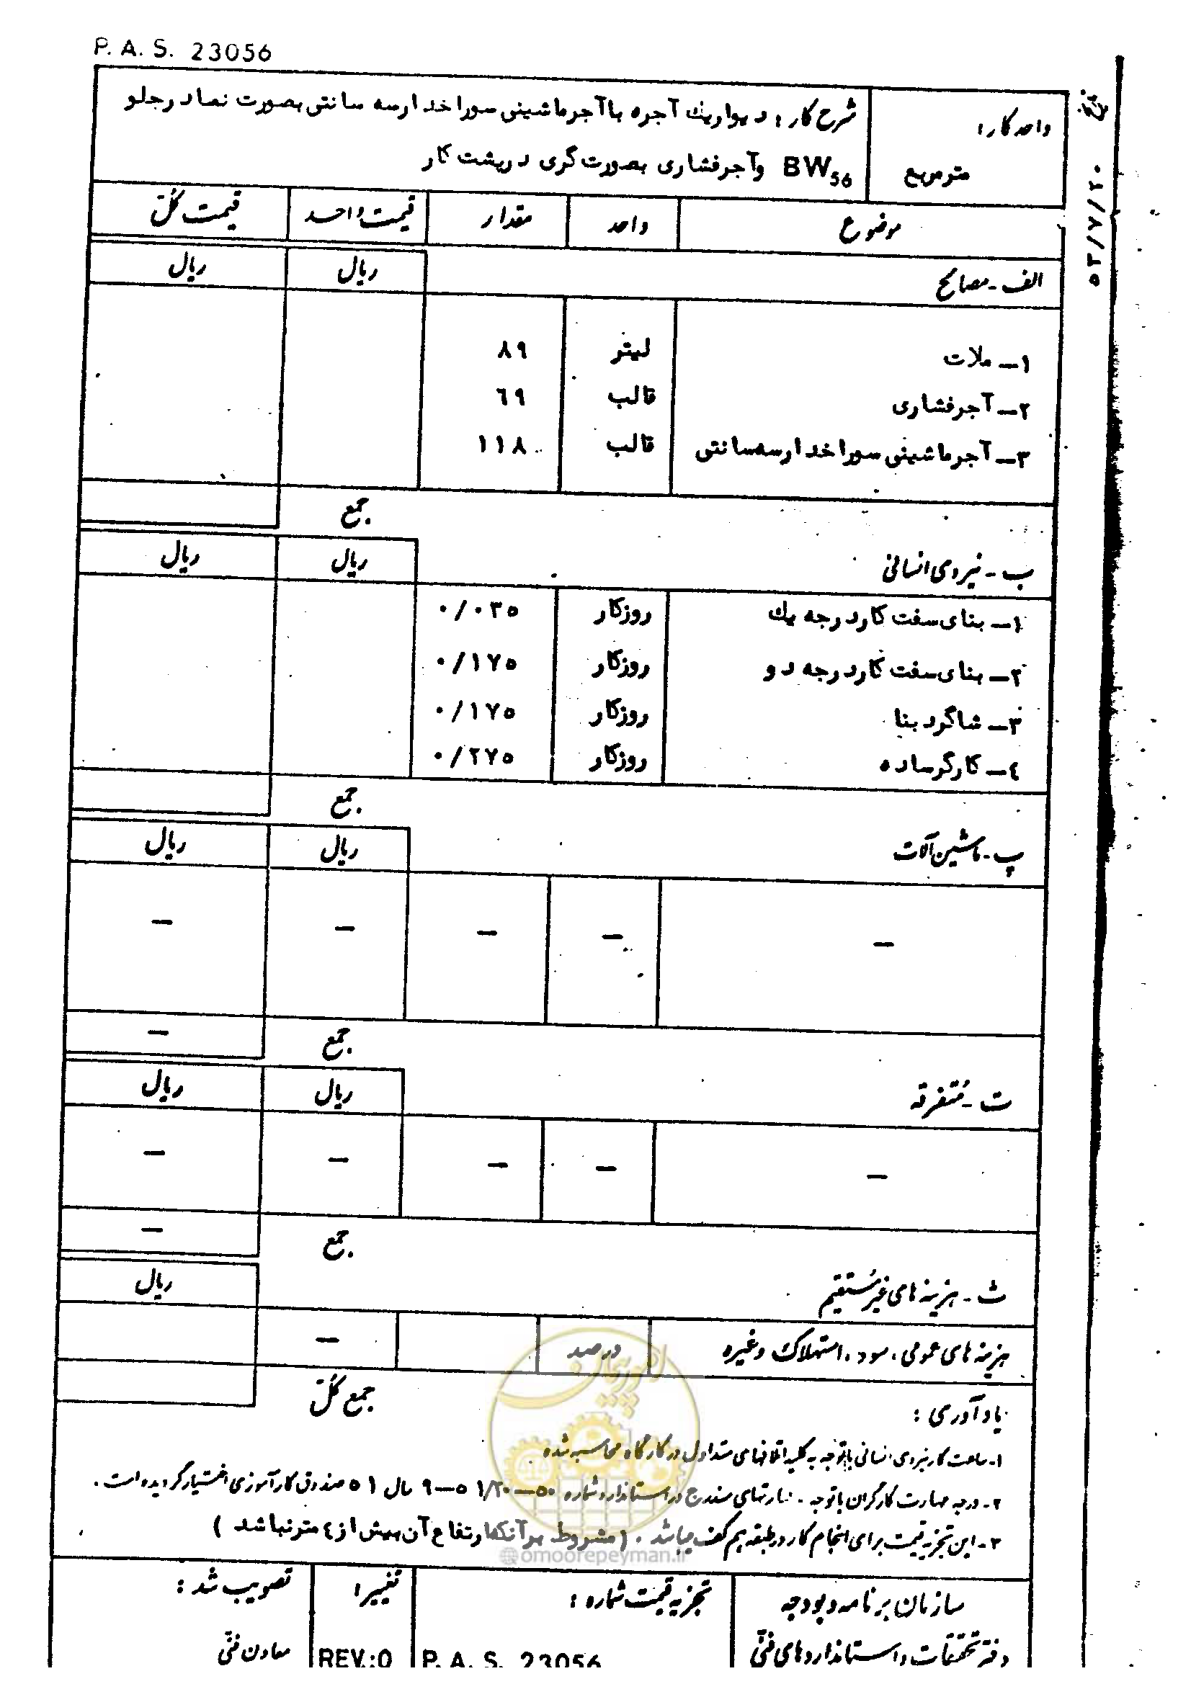 P. A. S. 23056
واحد کار:
مترمربع
شرح کار: دیوار یك آجره با آجرماشینی سوراخدار سه سانتی بصورت نما در جلو
و آجرفشاری بصورت گری در پشت کار BW56
۵۳/۷/۲۰
موضوع واحد مقدار قیمت واحد قیمت کل
الف - مصالح ریال ریال
۱- ملات لیتر ۸۹
۲- آجرفشاری قالب ٦۹
۳- آجرماشینی سوراخدار سه سانتی قالب ۱۱۸
جمع
ب - نیروی انسانی ریال ریال
۱- بنای سفت کار درجه یك روزکار ۰/۰۳۵
۲- بنای سفت کار درجه دو روزکار ۰/۱۷۵
۳- شاگرد بنا روزکار ۰/۱۷۵
٤- کارگر ساده روزکار ۰/۲۷۵
جمع
پ - ماشین آلات ریال ریال
— — — — —
جمع —
ت - متفرقه ریال ریال
— — — — —
جمع —
ث - هزینه های غیر مستقیم ریال
هزینه های عمومی، سود، استهلاک وغیره درصد —
جمع کل
یادآوری:
۱- ساعت کار نیروی انسانی باتوجه به کلیه اتلافهای متداول در کارگاه محاسبه شده
۲- درجه مهارت کارگران باتوجه مهارتهای مندرج در استاندارد شماره ۹-۵۱ ۱/۲۰-۵۰ سال ۵۱ صندوق کارآموزی اختیار گردیده است.
۳- این تجزیه قیمت برای انجام کار در طبقه هم کف میباشد. (مشروط بر آنکه ارتفاع آن بیش از ٤ متر نباشد)
امور پیمان
@omoorepeyman.ir
سازمان برنامه و بودجه
دفتر تحقیقات و استانداردهای فنی
تجزیه قیمت شماره:
P. A. S. 23056
تغییر:
REV.:0
تصویب شد:
معاون فنی